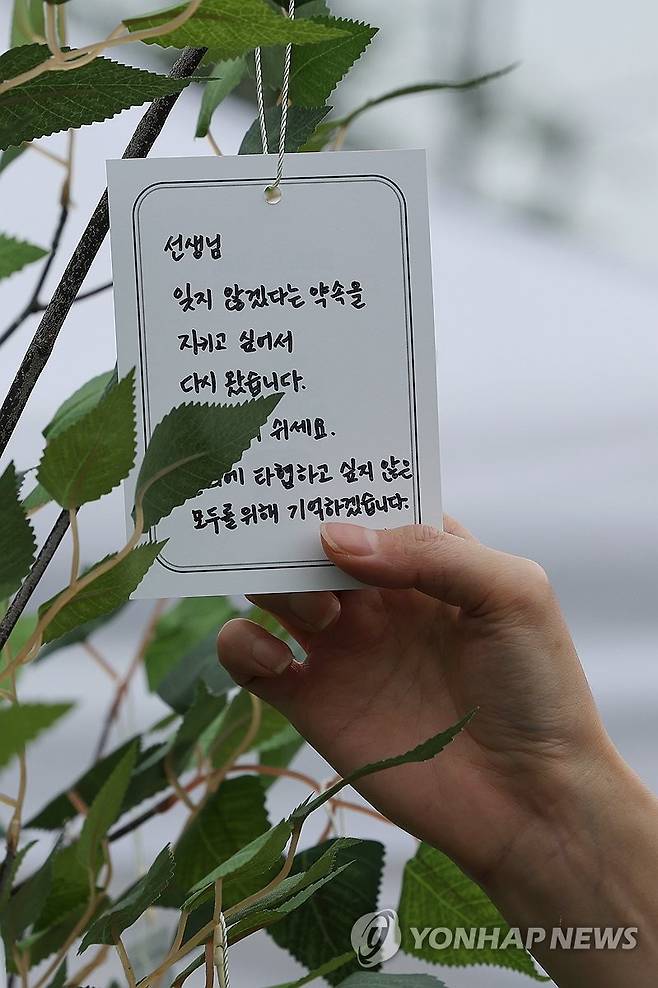 선생님
잊지 않겠다는 약속을
지키고 싶어서
다시 왔습니다.
쉬세요.
타협하고 싶지 않은
모두를 위해 기억하겠습니다.
YONHAP NEWS